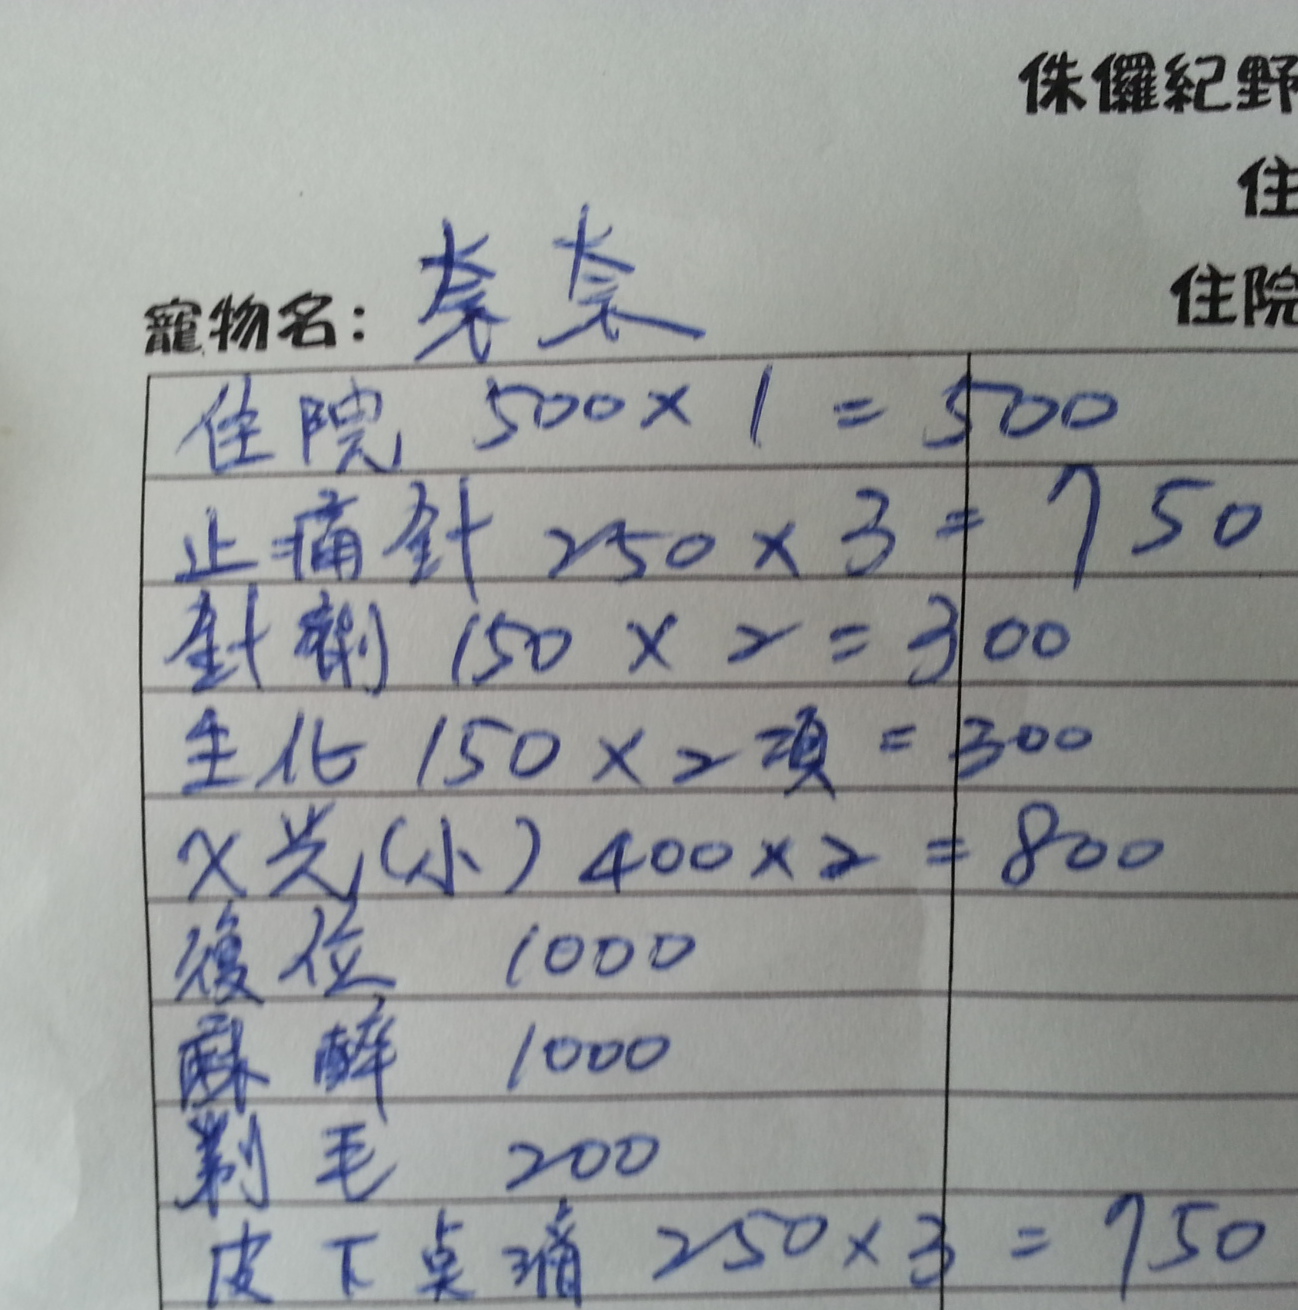 侏儸紀野
住
寵物名: 奈奈 住院
住院 500 × 1 = 500
止痛針 250 × 3 = 750
針劑 150 × 2 = 300
生化 150 × 2項 = 300
X光(小) 400 × 2 = 800
復位 1000
麻醉 1000
剃毛 200
皮下 250 × 3 = 750